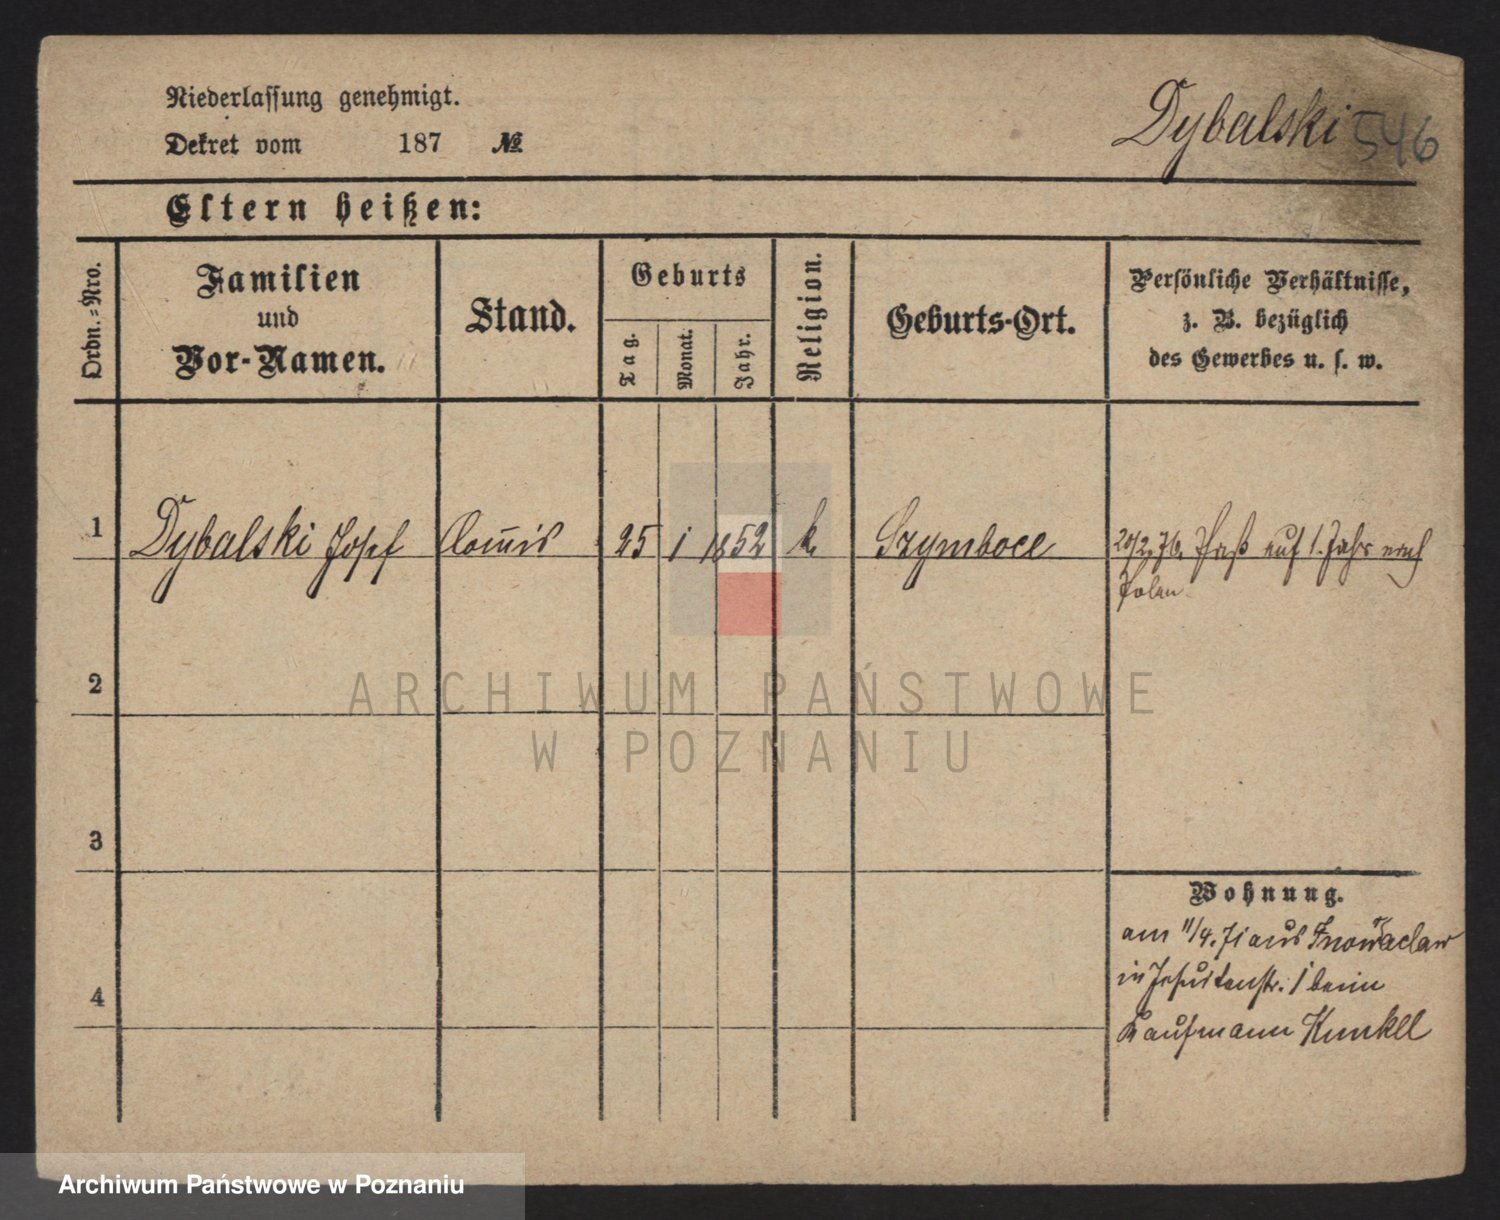 Niederlassung genehmigt.
Dybalski 546
Dekret vom 187 №
Eltern heißen:
Ordn.=Nro.
Familien
und
Vor-Namen.
Stand.
Geburts
Tag.
Monat.
Jahr.
Religion.
Geburts-Ort.
Persönliche Verhältnisse,
z. B. bezüglich
des Gewerbes u. s. w.
1 Dybalski Josef Com̄is 25 1 1852 k. Szymboce 20/2. 76. Paß auf 1. Jahr nach
Polen
2
3
4
Wohnung.
am 11/4. 71 aus Inowraclaw
in Jesuitenstr. 1 beim
Kaufmann Kunkel
ARCHIWUM PAŃSTWOWE
W POZNANIU
Archiwum Państwowe w Poznaniu